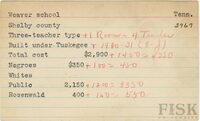 Weaver school Tenn.
Shelby county 3967
Three-teacher type +1 Room = 4 Teacher
Built under Tuskegee
Total cost $2,900 + 1480 = 4380
Negroes $350 + 100 = 450
Whites
Public 2,150 + 1200 = 3350
Rosenwald 400
FISK